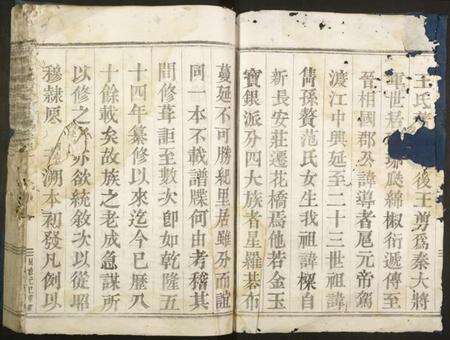 王氏 後王剪爲秦大將
軍世居 瓞綿椒衍遞傳至
晉相國郡公諱導者扈元帝駕
渡江中興延至二十三世祖諱
儁孫贅范氏女生我祖諱樑自
新長安莊遷花橋焉他若金玉
寶銀派分四大族者星羅碁布
蔓延不可勝紀里居雖分而誼
同一本不載譜牒何由考稽其
間修葺詎至數次卽如乾隆五
十四年纂修以來迄今已歷八
十餘載矣故族之老成急謀所
以修之 亦欲統敘次以從昭
穆隸原 溯本初發凡例以